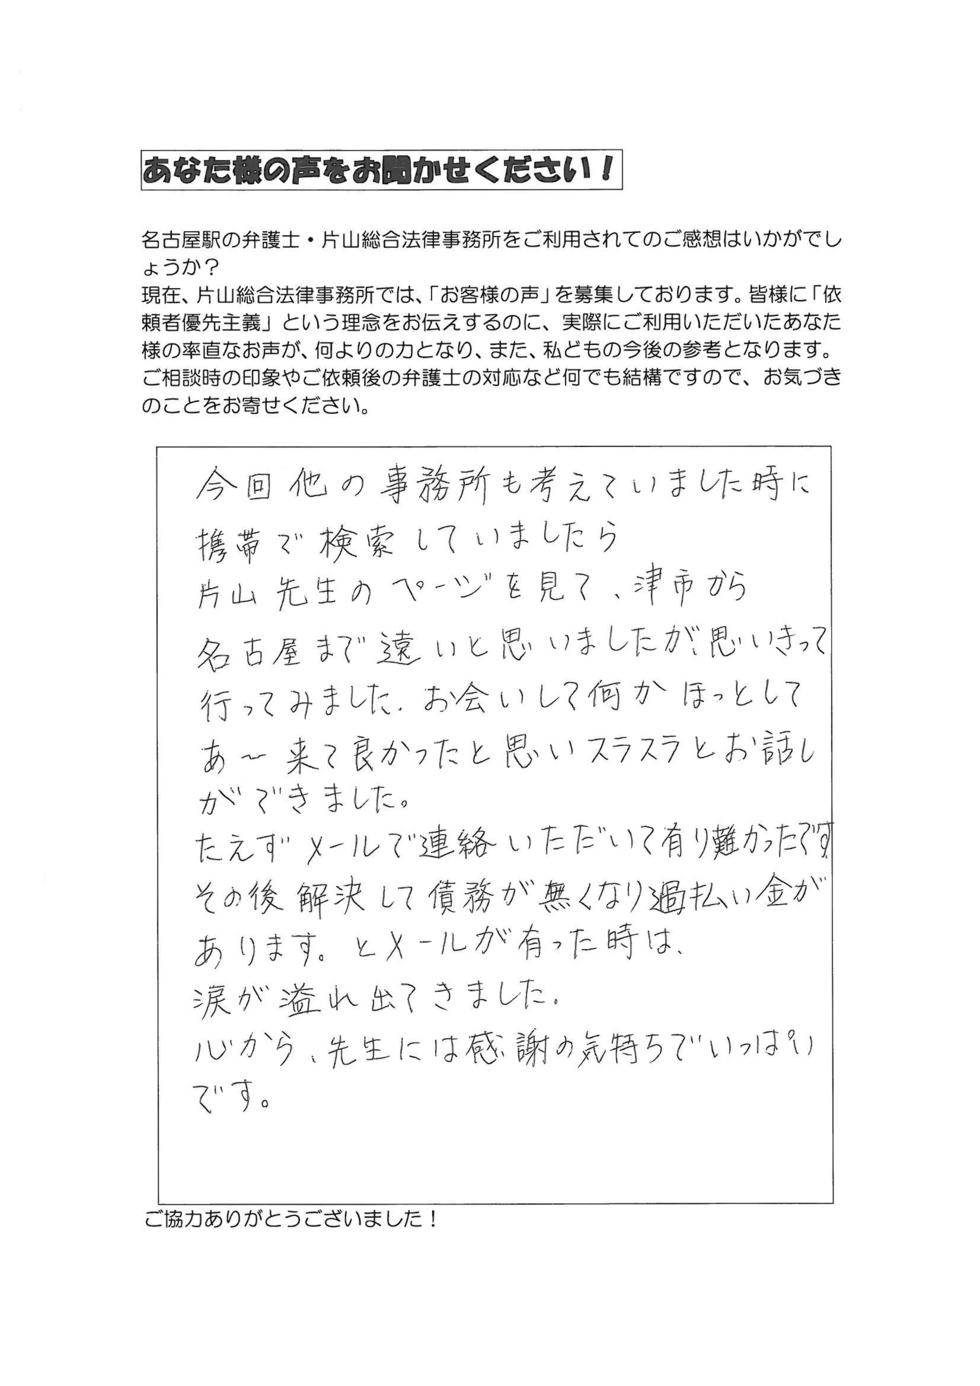 あなた様の声をお聞かせください！
名古屋駅の弁護士・片山総合法律事務所をご利用されてのご感想はいかがでし
ょうか？
現在、片山総合法律事務所では、「お客様の声」を募集しております。皆様に「依
頼者優先主義」という理念をお伝えするのに、実際にご利用いただいたあなた
様の率直なお声が、何よりの力となり、また、私どもの今後の参考となります。
ご相談時の印象やご依頼後の弁護士の対応など何でも結構ですので、お気づき
のことをお寄せください。
今回他の事務所も考えていました時に
携帯で検索していましたら
片山先生のページを見て、津市から
名古屋まで遠いと思いましたが、思いきって
行ってみました。お会いして何かほっとして
あ～来て良かったと思いスラスラとお話し
ができました。
たえずメールで連絡いただいて有り難かったです
その後解決して債務が無くなり過払い金が
あります。とメールが有った時は、
涙が溢れ出てきました。
心から、先生には感謝の気持ちでいっぱい
です。
ご協力ありがとうございました！